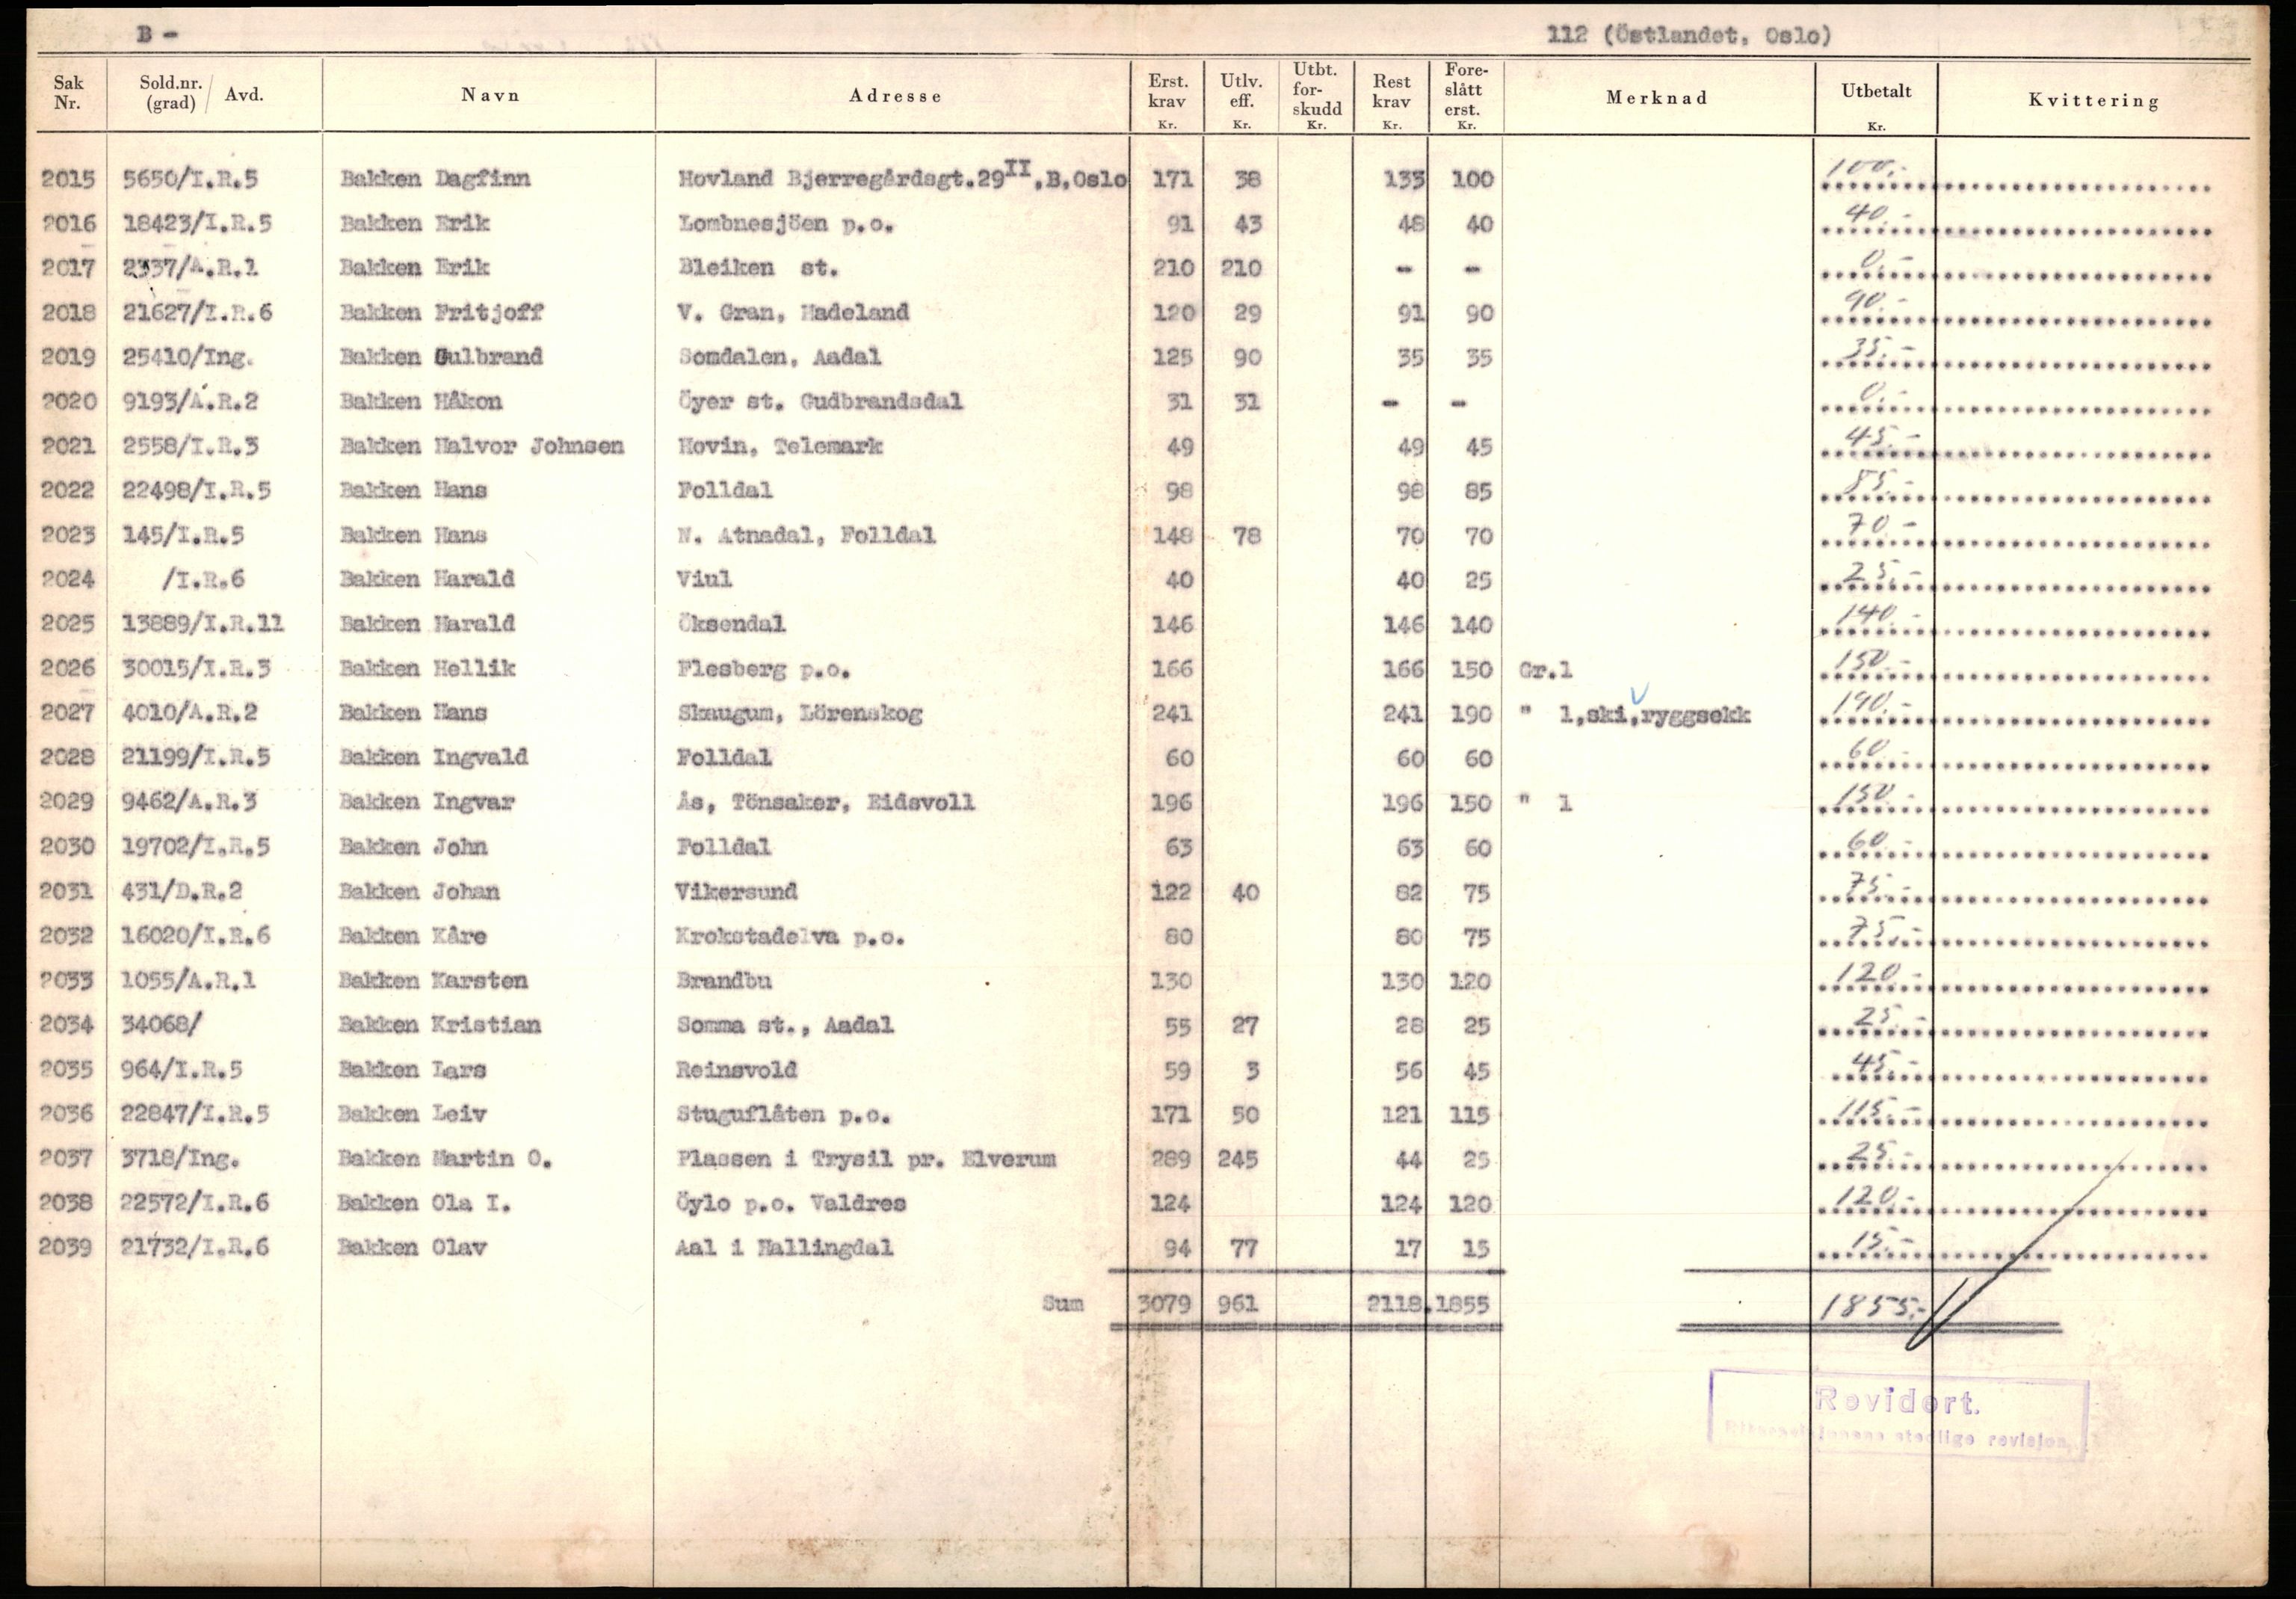 B - 112 (Östlandet, Oslo)
Sak Nr. Sold.nr. (grad) / Avd. Navn Adresse Erst. krav Kr. Utlv. eff. Kr. Utbt. for-skudd Kr. Rest krav Kr. Fore-slått erst. Kr. Merknad Utbetalt Kr. Kvittering
2015 5650/I.R.5 Bakken Dagfinn Hovland Bjerregårdsgt.29II,B,Oslo 171 38 133 100 100.-
2016 18423/I.R.5 Bakken Erik Lombnesjöen p.o. 91 43 48 40 40.-
2017 2337/A.R.1 Bakken Erik Bleiken st. 210 210 - - 0.-
2018 21627/I.R.6 Bakken Fritjoff V. Gran, Hadeland 120 29 91 90 90.-
2019 25410/Ing. Bakken Gulbrand Somdalen, Aadal 125 90 35 35 35.-
2020 9193/A.R.2 Bakken Håkon Öyer st. Gudbrandsdal 31 31 - - 0.-
2021 2558/I.R.3 Bakken Halvor Johnsen Hovin, Telemark 49 49 45 45.-
2022 22498/I.R.5 Bakken Hans Folldal 98 98 85 85.-
2023 145/I.R.5 Bakken Hans N. Atnadal, Folldal 148 78 70 70 70.-
2024 /I.R.6 Bakken Harald Viul 40 40 25 25.-
2025 13889/I.R.11 Bakken Harald Öksendal 146 146 140 140.-
2026 30015/I.R.3 Bakken Hellik Flesberg p.o. 166 166 150 Gr.1 150.-
2027 4010/A.R.2 Bakken Hans Skaugum, Lörenskog 241 241 190 " 1,ski,ryggsekk 190.-
2028 21199/I.R.5 Bakken Ingvald Folldal 60 60 60 60.-
2029 9462/A.R.3 Bakken Ingvar Ås, Tönsaker, Eidsvoll 196 196 150 " 1 150.-
2030 19702/I.R.5 Bakken John Folldal 63 63 60 60.-
2031 431/D.R.2 Bakken Johan Vikersund 122 40 82 75 75.-
2032 16020/I.R.6 Bakken Kåre Krokstadelva p.o. 80 80 75 75.-
2033 1055/A.R.1 Bakken Karsten Brandbu 130 130 120 120.-
2034 34068/ Bakken Kristian Somma st., Aadal 55 27 28 25 25.-
2035 964/I.R.5 Bakken Lars Reinsvold 59 3 56 45 45.-
2036 22847/I.R.5 Bakken Leiv Stuguflåten p.o. 171 50 121 115 115.-
2037 3718/Ing. Bakken Martin O. Plassen i Trysil pr. Elverum 289 245 44 25 25.-
2038 22572/I.R.6 Bakken Ola I. Öylo p.o. Valdres 124 124 120 120.-
2039 21732/I.R.6 Bakken Olav Aal i Hallingdal 94 77 17 15 15.-
Sum 3079 961 2118.1855 1855.-
Revidert.
stedlige revisjon